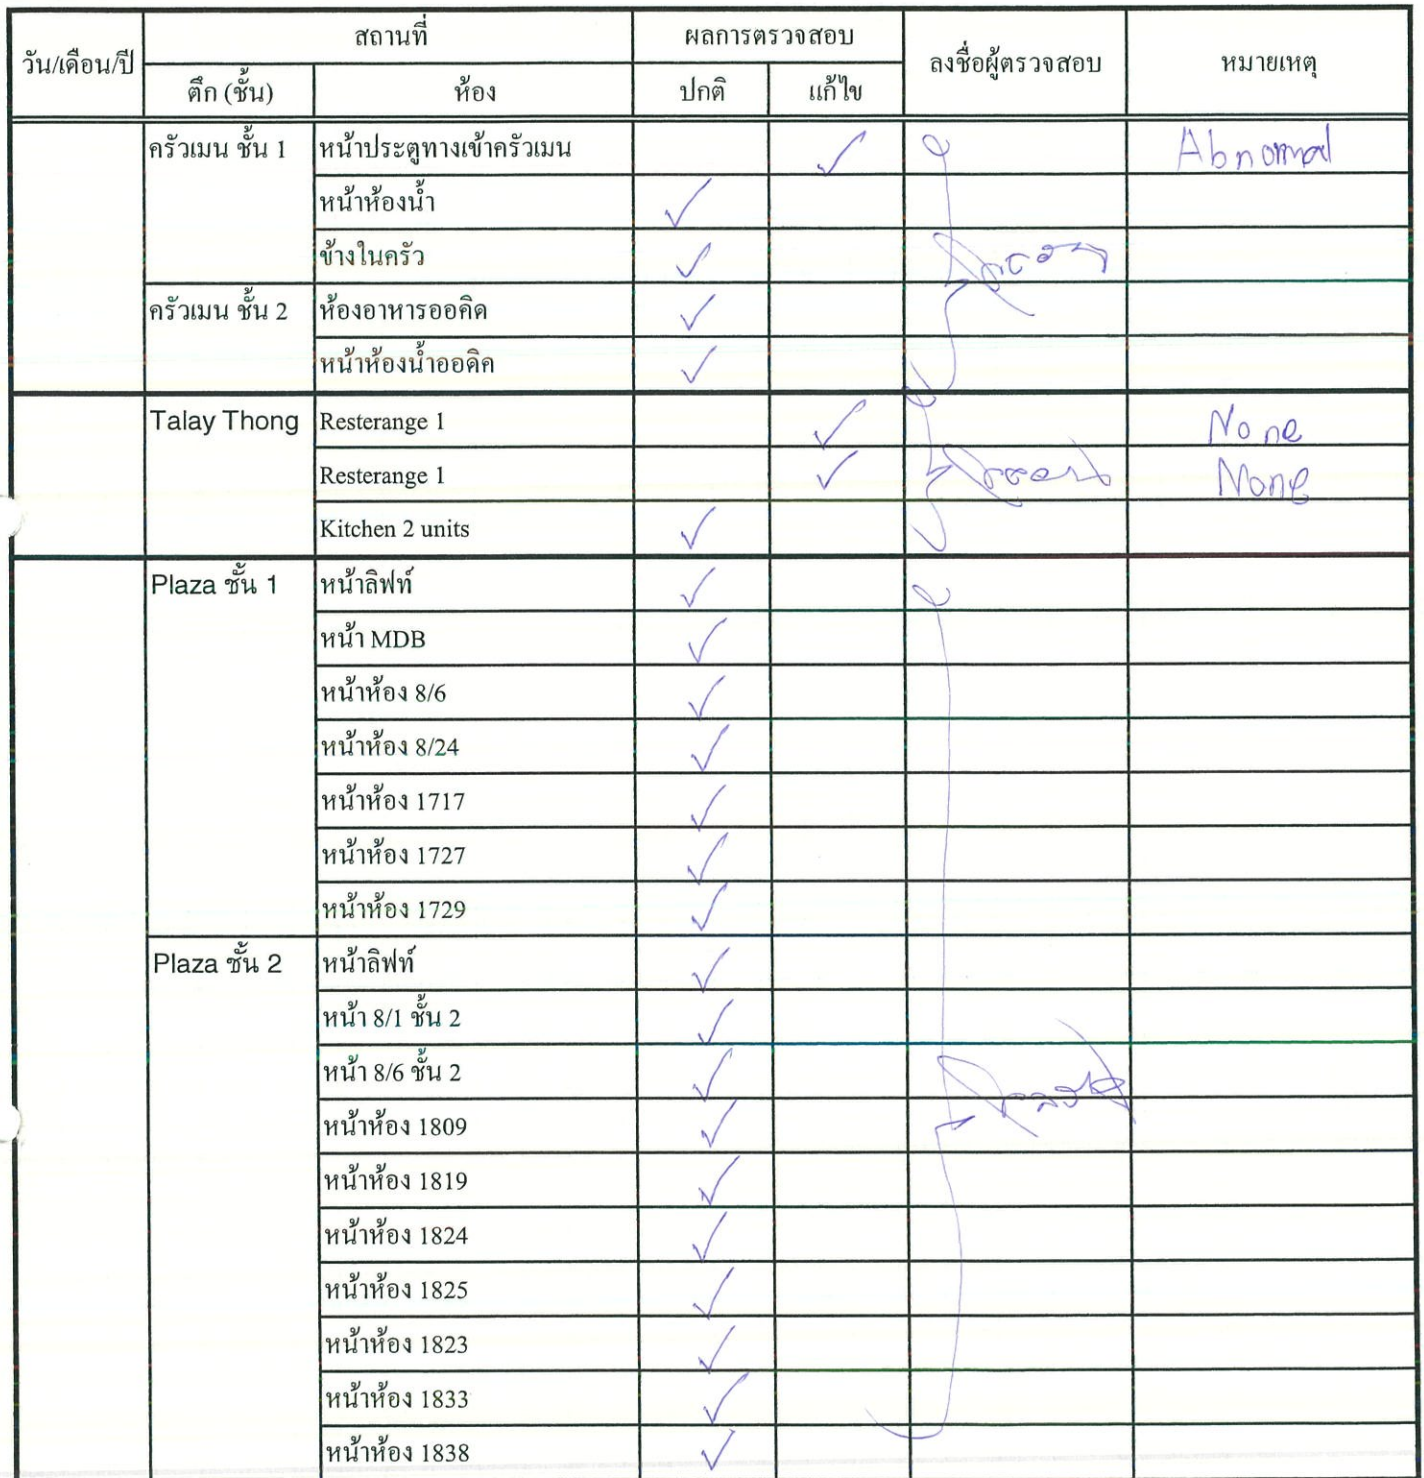 วัน/เดือน/ปี สถานที่ ผลการตรวจสอบ ลงชื่อผู้ตรวจสอบ หมายเหตุ
ตึก (ชั้น) ห้อง ปกติ แก้ไข
ครัวเมน ชั้น 1 หน้าประตูทางเข้าครัวเมน ✓ Abnormal
หน้าห้องน้ำ ✓
ข้างในครัว ✓
ครัวเมน ชั้น 2 ห้องอาหารออคิด ✓
หน้าห้องน้ำออคิด ✓
Talay Thong Resterange 1 ✓ None
Resterange 1 ✓ None
Kitchen 2 units ✓
Plaza ชั้น 1 หน้าลิฟท์ ✓
หน้า MDB ✓
หน้าห้อง 8/6 ✓
หน้าห้อง 8/24 ✓
หน้าห้อง 1717 ✓
หน้าห้อง 1727 ✓
หน้าห้อง 1729 ✓
Plaza ชั้น 2 หน้าลิฟท์ ✓
หน้า 8/1 ชั้น 2 ✓
หน้า 8/6 ชั้น 2 ✓
หน้าห้อง 1809 ✓
หน้าห้อง 1819 ✓
หน้าห้อง 1824 ✓
หน้าห้อง 1825 ✓
หน้าห้อง 1823 ✓
หน้าห้อง 1833 ✓
หน้าห้อง 1838 ✓